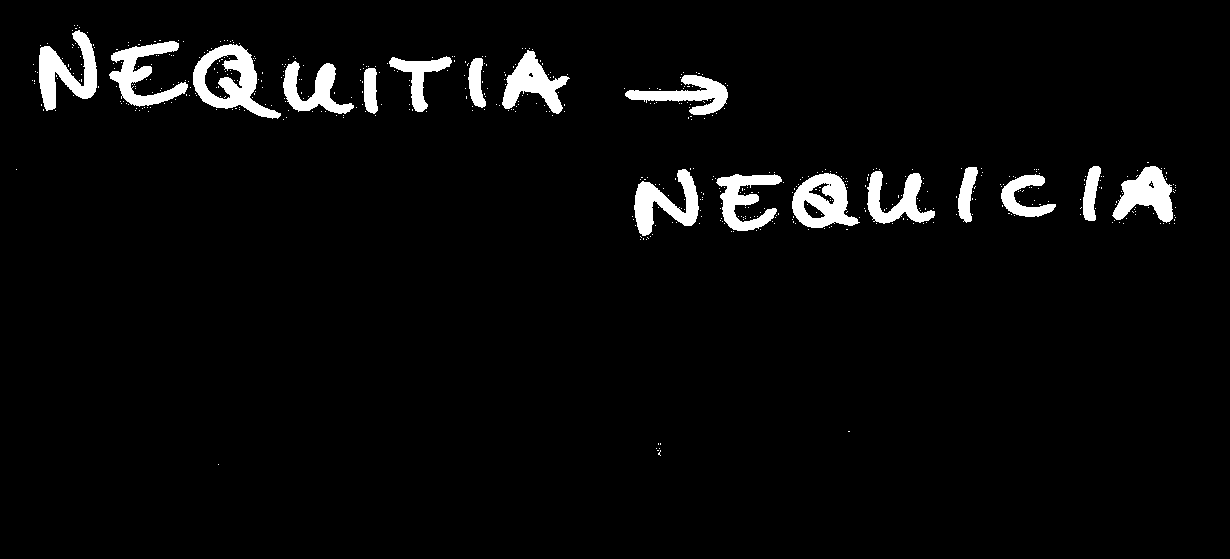 NEQUITIA →
NEQUICIA